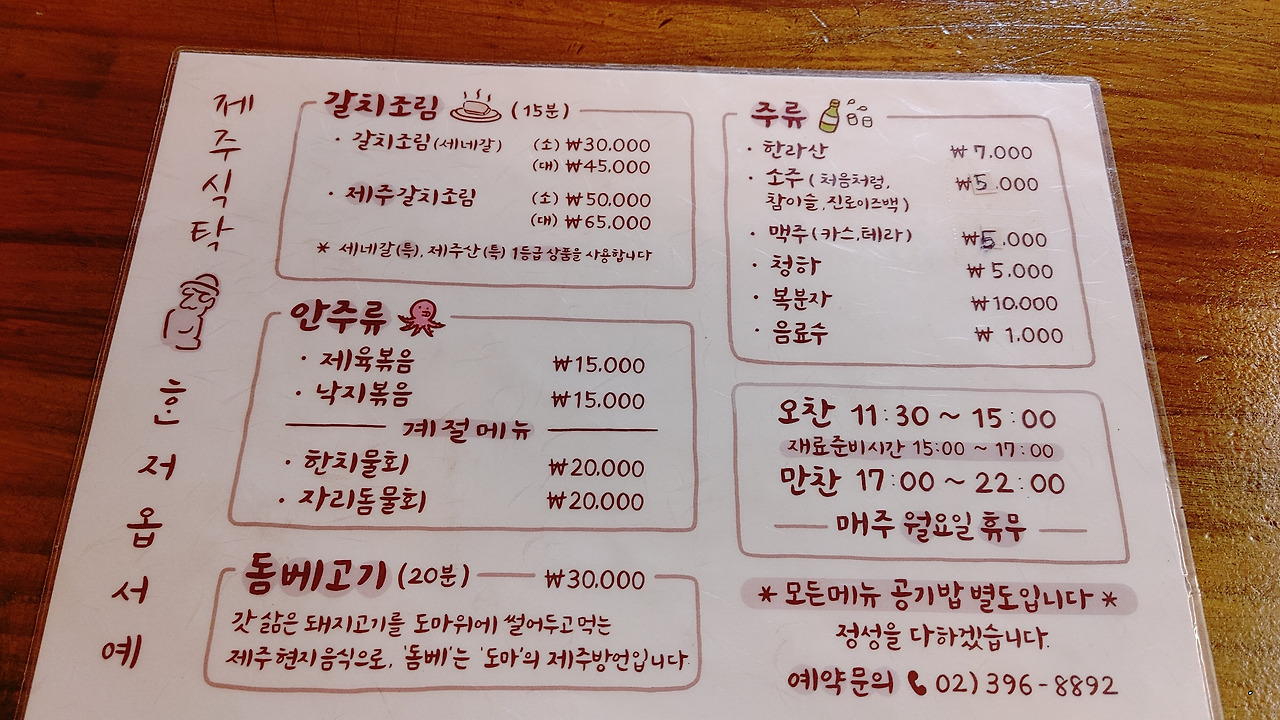 제주식탁
혼저옵서예
갈치조림 (15분)
· 갈치조림(세네갈) (소) ₩30.000
(대) ₩45.000
· 제주갈치조림 (소) ₩50.000
(대) ₩65.000
* 세네갈(특), 제주산(특) 1등급 상품을 사용합니다
안주류
· 제육볶음 ₩15.000
· 낙지볶음 ₩15.000
계절메뉴
· 한치물회 ₩20.000
· 자리돔물회 ₩20.000
돔베고기 (20분) ₩30.000
갓 삶은 돼지고기를 도마위에 썰어두고 먹는
제주 현지음식으로, '돔베'는 '도마'의 제주방언입니다.
주류
· 한라산 ₩7.000
· 소주 (처음처럼, ₩5.000
참이슬, 진로이즈백)
· 맥주(카스,테라) ₩5.000
· 청하 ₩5.000
· 복분자 ₩10.000
· 음료수 ₩1.000
오찬 11:30 ~ 15:00
재료준비시간 15:00 ~ 17:00
만찬 17:00 ~ 22:00
매주 월요일 휴무
* 모든메뉴 공기밥 별도입니다 *
정성을 다하겠습니다.
예약문의 02) 396-8892